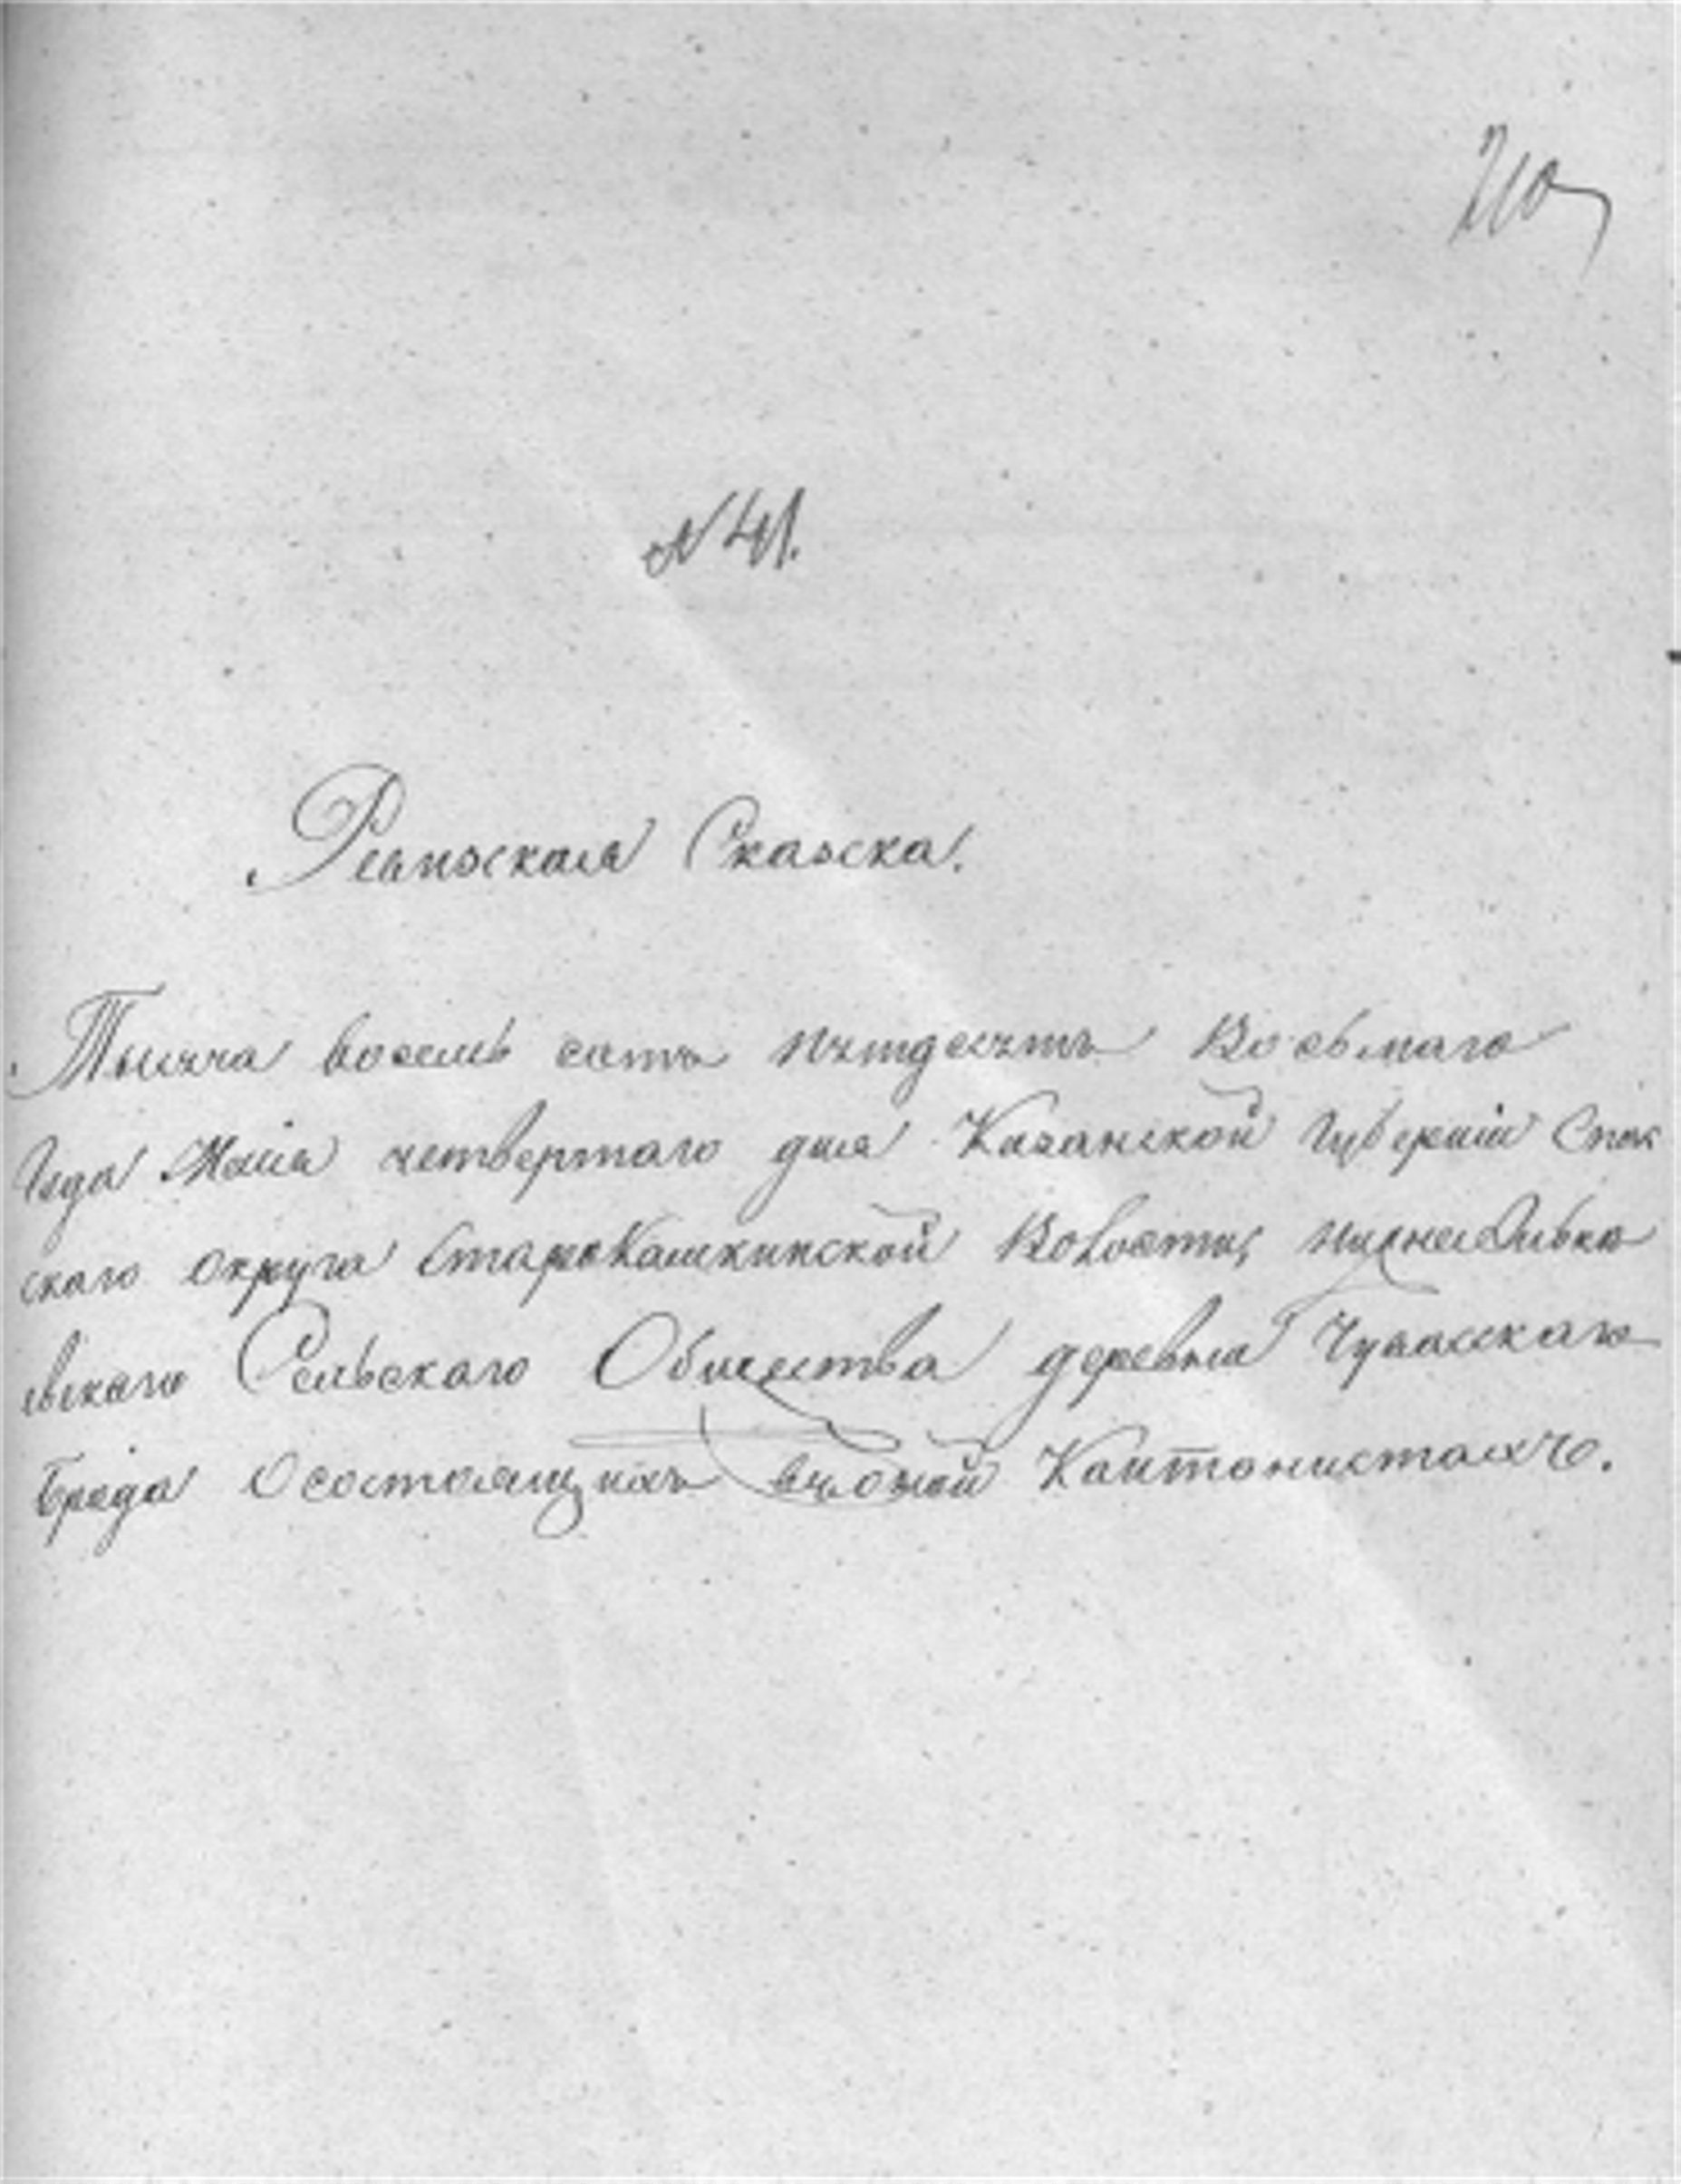 210
№ 41.
Ревизская Сказска.
Тысяча восемь сотъ пятдесятъ Восьмаго
Года Маія четвертаго дня Казанской Губерніи Спас
скаго округа СтароКамкинской Волости,
евскаго Сельскаго Общества деревни Чувасскаго
Брода Осостоящихъ Кантонистахъ.